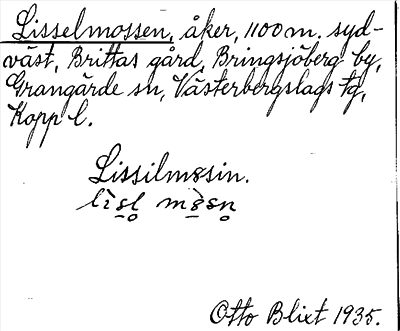 Lisselmossen, åker, 1100 m. syd-
väst, Brittas gård, Bringsjöberg by,
Grangärde sn, Västerbergslags tg,
Kopp l.
Lissilmåsin.
lisl måsn
Otto Blixt 1935.